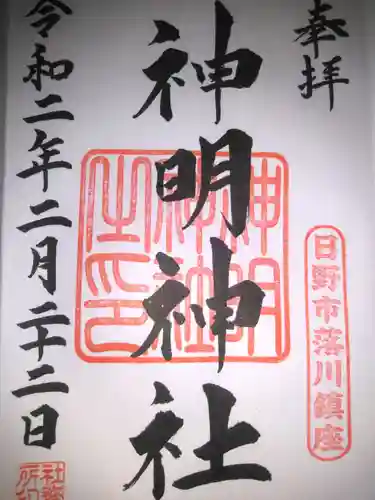 奉拝
日野市落川鎮座
神明神社
神明神社之印
令和二年二月二十二日